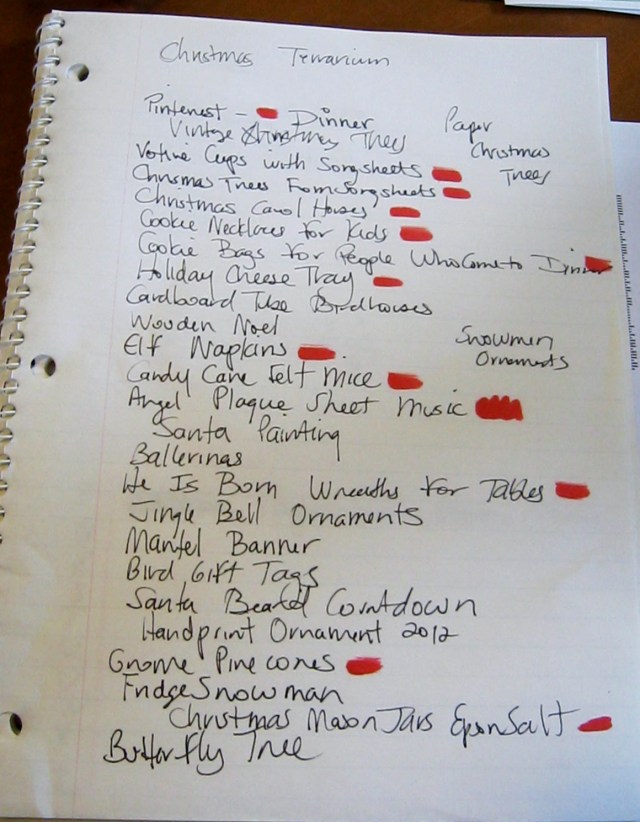 Christmas Terrarium
Pinterest - Dinner
Vintage Christmas Trees
Paper
Christmas
Trees
Votive Cups with Songsheets
Christmas Trees From Songsheets
Christmas Carol Houses
Cookie Necklaces for Kids
Cookie Bags for People Who Come to Dinner
Holiday Cheese Tray
Cardboard Tube Birdhouses
Wooden Noel
Snowmen
Ornaments
Elf Napkins
Candy Cane Felt Mice
Angel Plaque Sheet Music
Santa Painting
Ballerinas
He Is Born Wreaths for Tables
Jingle Bell Ornaments
Mantel Banner
Bird Gift Tags
Santa Beard Countdown
Handprint Ornament 2012
Gnome Pine cones
Fridge Snowman
Christmas Mason Jars Epson Salt
Butterfly Tree